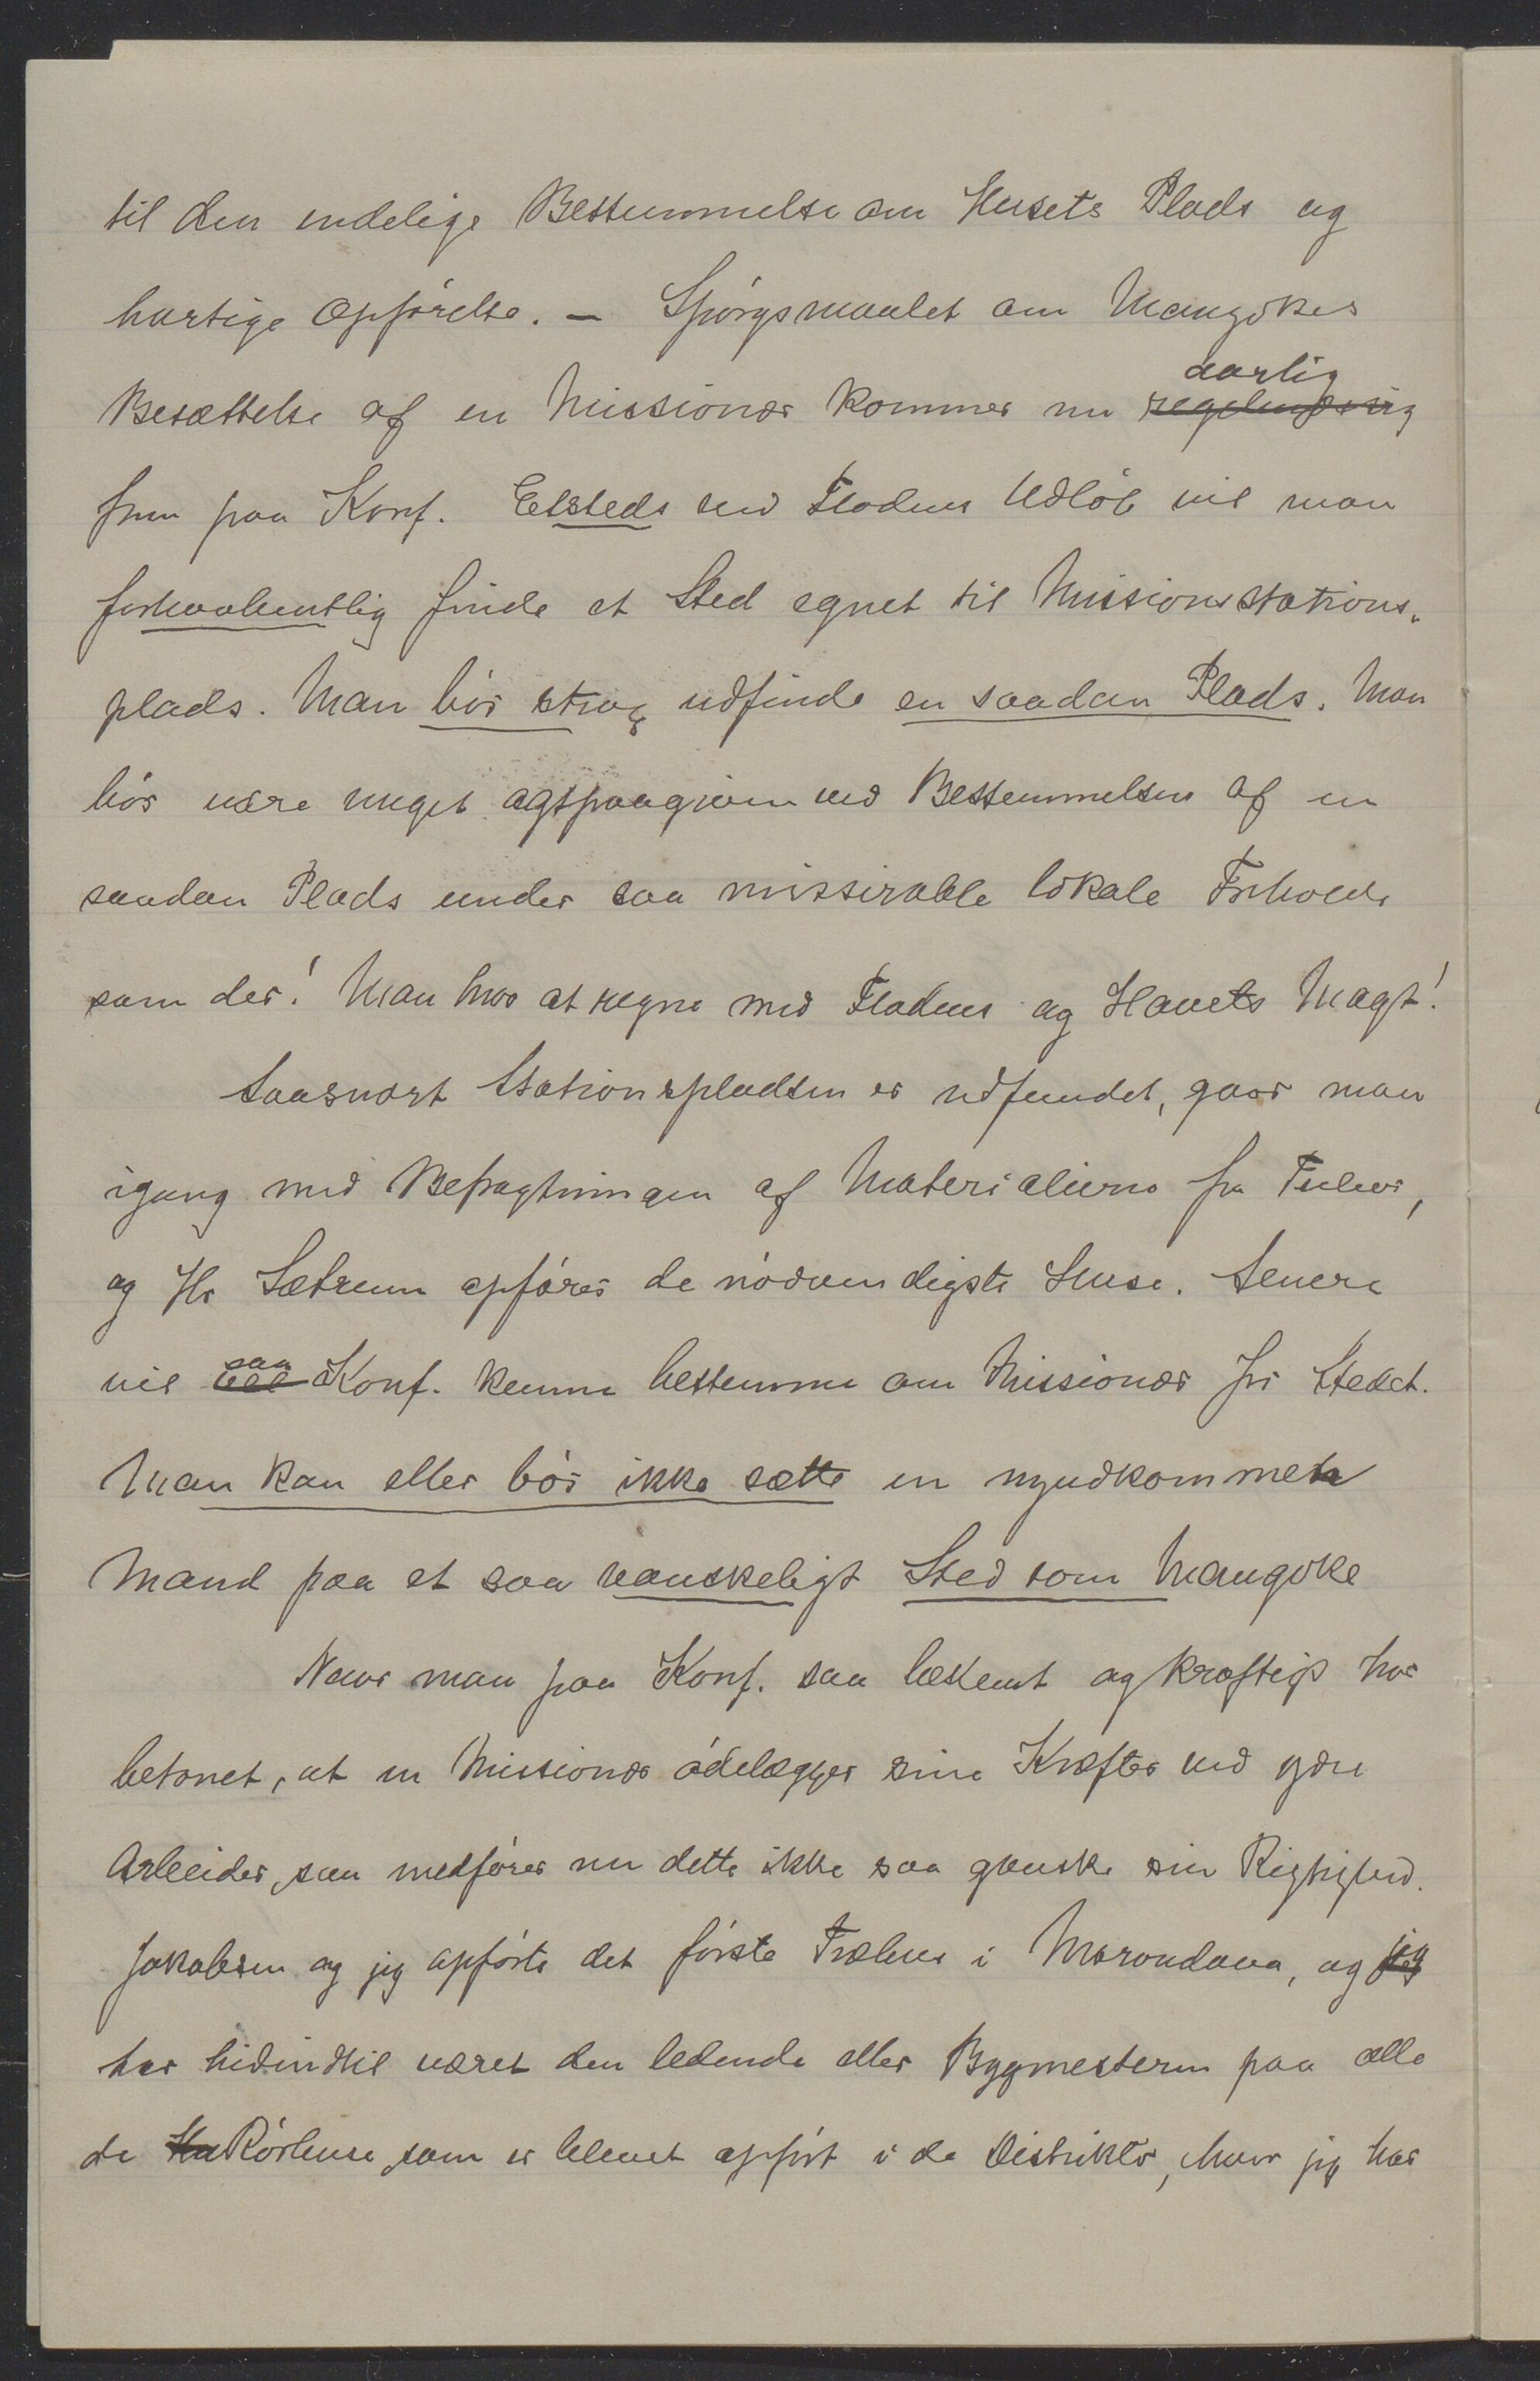 til den endelige Bestemmelse om Husets Plads og
hurtige Opførelse. – Spørgsmaalet om Mangokes
Besættelse af en Missionær kommer nu aarlig
frem paa Konf. Etsteds ved Flodens Udløb vil man
forhaabentlig finde et Sted egnet til Missionsstations-
plads. Man bør strax udfinde en saadan Plads. Man
bør være meget agtpaagiven ved Bestemmelsen af en
saadan Plads under saa misserable lokale Forholde
som der! Man har at regne med Flodens og Havets Magt!
Saasnart Stationspladsen er udfundet, gaar man
igang med Befragtningen af Materialierne fra Tulear,
og Hr Sætrum opfører de nødvendigste Huse. Senere
vil saa Konf. kunne bestemme om Missionær for Stedet.
Man kan eller bør ikke sætte en nyudkommen
Mand paa et saa vanskeligt Sted som Mangoke
Naar man paa Konf. saa bestemt og kraftigt har
betonet, at en Missionær ødelægger sine Kræfter ved ydre
Arbeider, saa medfører nu dette ikke saa ganske sin Rigtighed.
Jakobsen og jeg opførte det første Træhus i Morondava, og jeg
har hidindtil været den ledende eller Bygmesteren paa alle
de Rørhuse som er blevet opført i de Distrikter, hvor jeg har